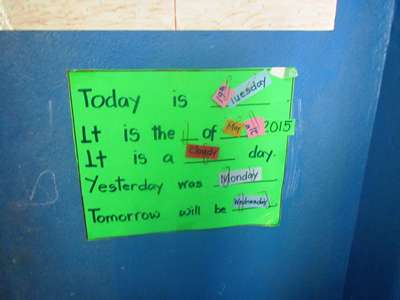 Today is Tuesday
It is the of May 2015
It is a Cloudy day.
Yesterday was Monday
Tomorrow will be Wednesday